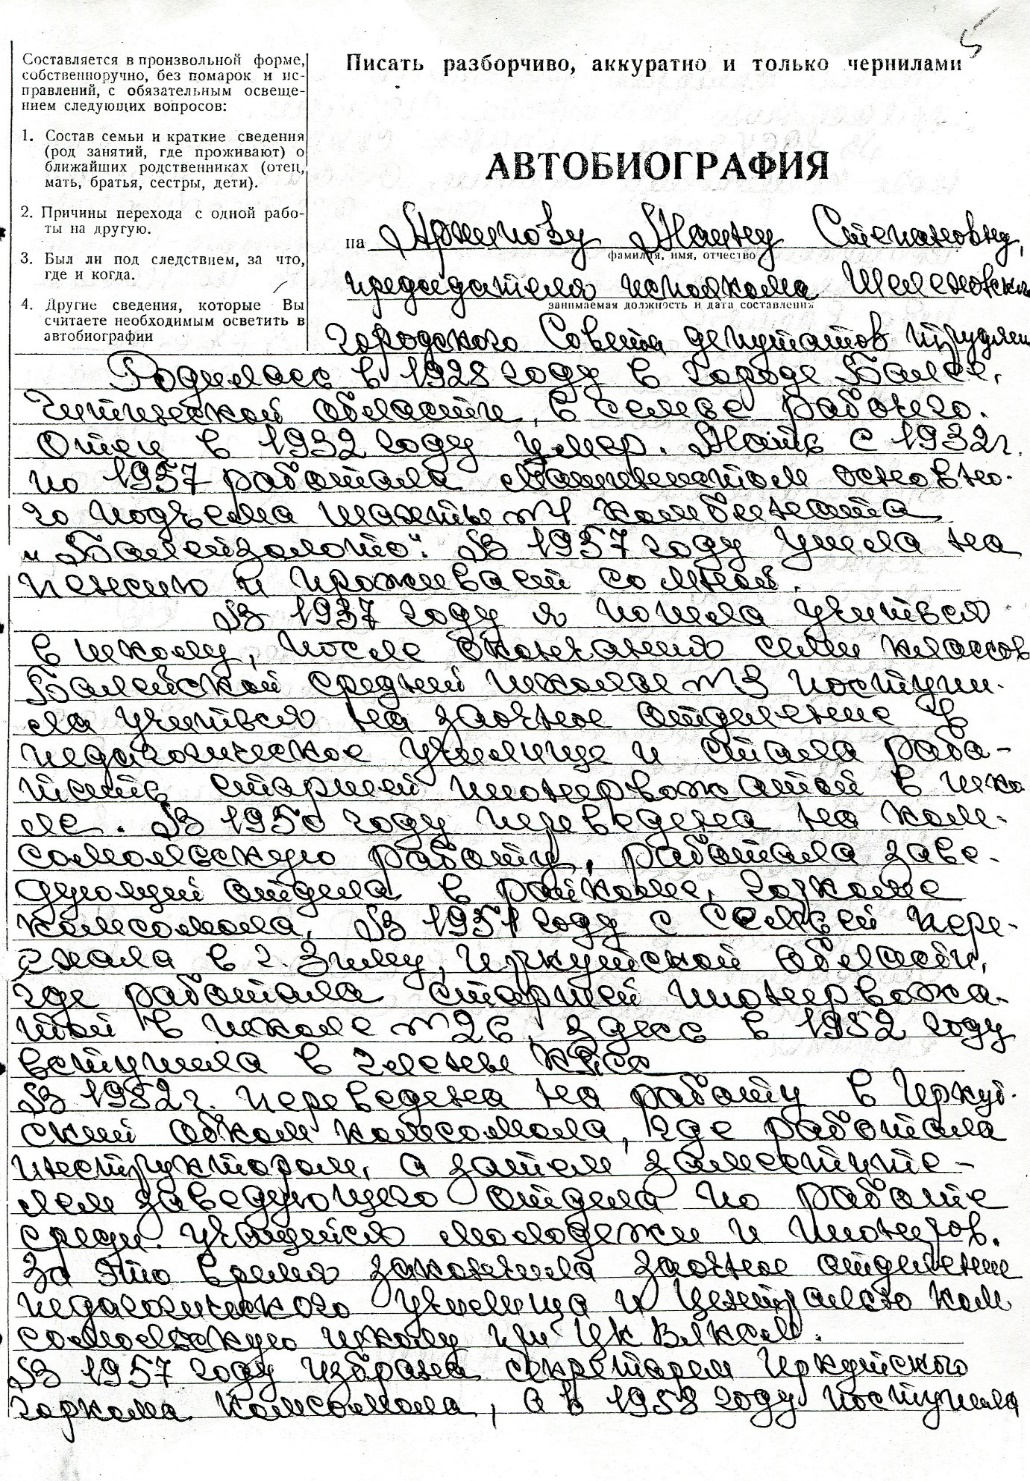 5
Составляется в произвольной форме,
собственноручно, без помарок и ис-
правлений, с обязательным освеще-
нием следующих вопросов:
1. Состав семьи и краткие сведения
(род занятий, где проживают) о
ближайших родственниках (отец,
мать, братья, сестры, дети).
2. Причины перехода с одной рабо-
ты на другую.
3. Был ли под следствием, за что,
где и когда.
4. Другие сведения, которые Вы
считаете необходимым осветить в
автобиографии
Писать разборчиво, аккуратно и только чернилами
АВТОБИОГРАФИЯ
на Архипову Маину Степановну,
фамилия, имя, отчество
председателя исполкома Шелеховско
занимаемая должность и дата составления
городского Совета депутатов трудящ
Родилась в 1928 году в городе Балее,
Читинской области, в семье рабочего.
Отец в 1932 году умер. Мать с 1932 г.
по 1957 работала машинистом основно-
го подъема шахты №1 комбината
"Балейзолото". В 1957 году ушла на
пенсию и проживает со мной.
В 1937 году я пошла учиться
в школу, после окончания семи классов
Балейской средней школы №3 поступи-
ла учиться на заочное отделение в
педагогическое училище и стала рабо-
тать старшей пионервожатой в шко
ле. В 1950 году переведена на ком-
сомольскую работу, работала заве-
дующей отдела в райкоме, горкоме
комсомола. В 1951 году с семьей пере-
ехала в г. Зиму, Иркутской области,
где работала старшей пионервожа-
той в школе №26, здесь в 1952 году
вступила в члены КПСС
В 1952 г. переведена на работу в Иркут-
ский обком комсомола, где работала
инструктором, а затем заместите-
лем заведующего отдела по работе
среди учащейся молодежи и пионеров.
За это время закончила заочное отделение
педагогического училища и Центральную ком
сомольскую школу при ЦК ВЛКСМ.
В 1957 году избрана секретарем Иркутского
горкома комсомола, а в 1958 году поступила